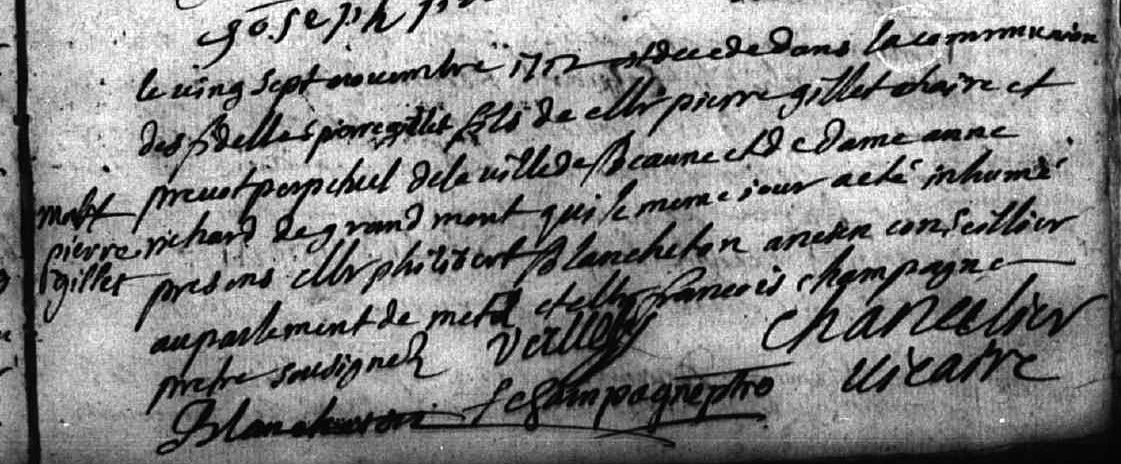 Joseph
le uing sept nouembre 1712 est decede dans la communion
des fidelles pierre gillet fils de Mr pierre gillet maire et
preuot perpetuel de la uille de Beaune et de dame anne
richard de grand mont qui le meme iour a eté inhumé
presens Mr philibert Blancheton ancien conseillier
au parlement de metz et Mr francois champagne
pretre sousignez
chancelier
uicaire
Blancheton
f champagne ptre
mort
pierre
gillet